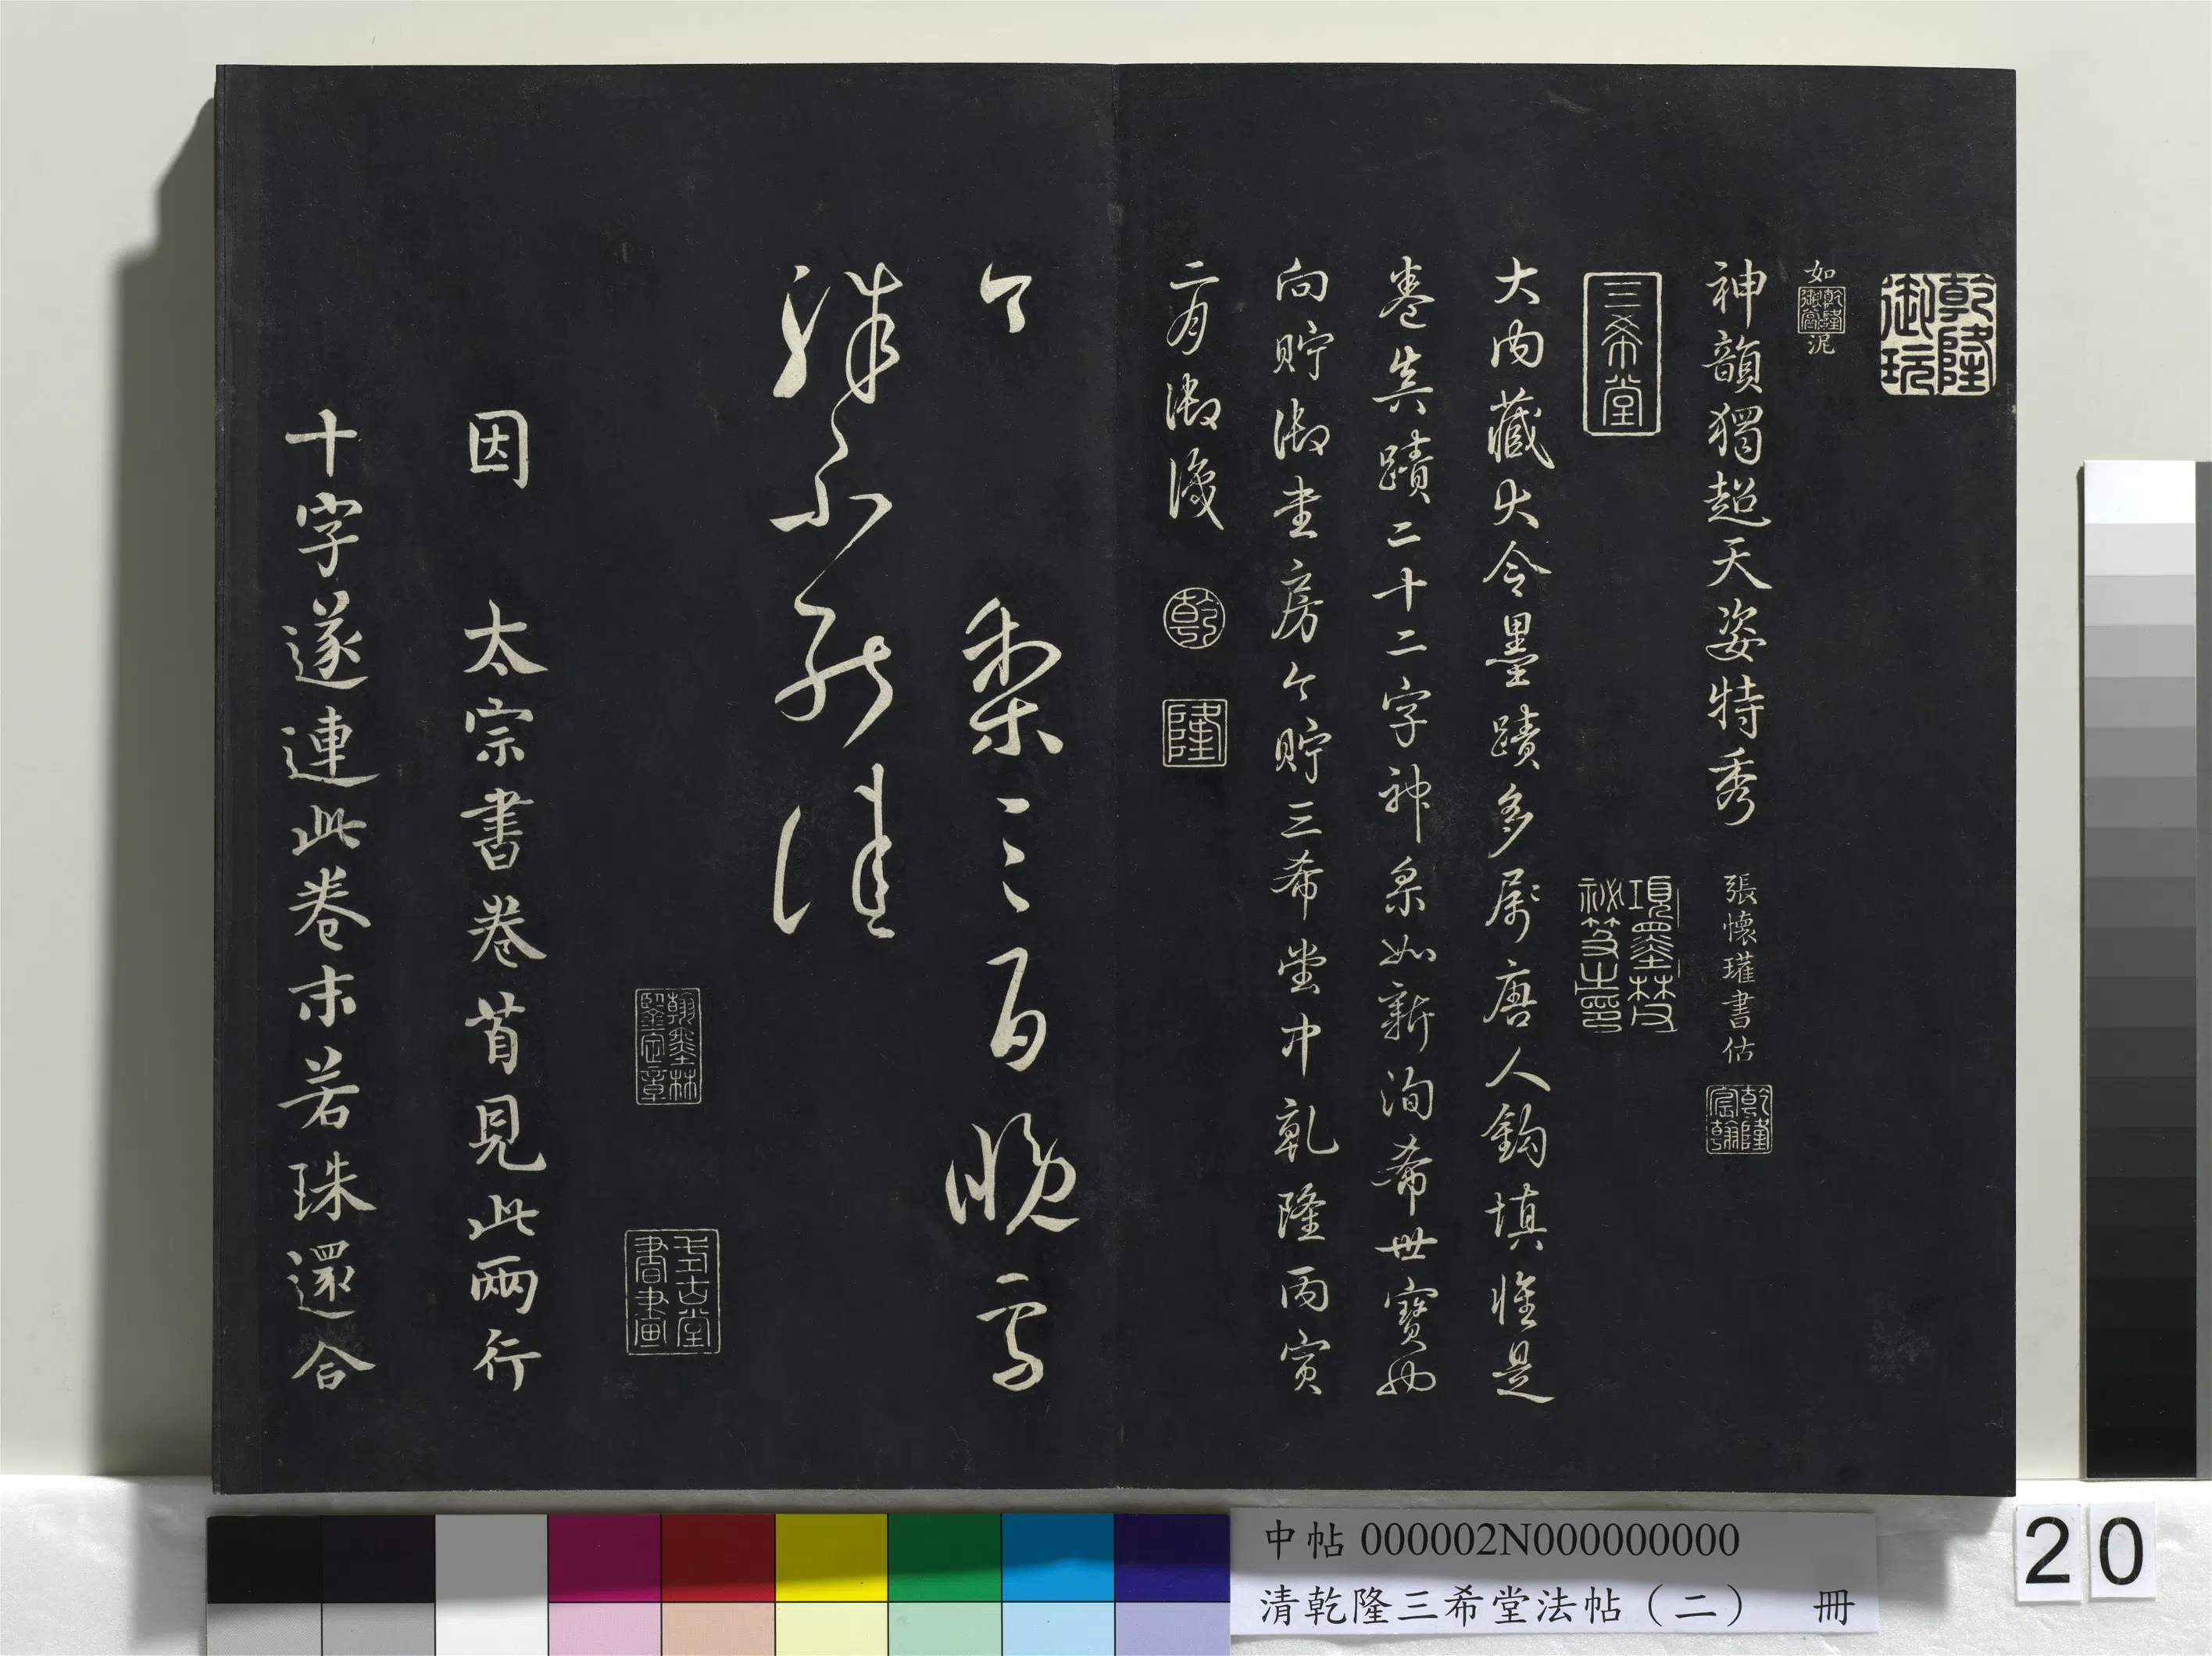 乾隆御玩
如
乾隆御賞
泥
神韻獨超天姿特秀
張懷瓘書估
乾隆宸翰
三希堂
項墨林父祕笈之印
大內藏大令墨蹟多屬唐人鈎填惟是
卷真蹟二十二字神采如新洵希世寶也
向貯御書房今貯三希堂中乾隆丙寅
二月御識
乾
隆
今梨三百晚雪
殊不能佳
翰墨林鑒定章
式古堂書畫
因 太宗書卷首見此兩行
十字遂連此卷末若珠還合
中帖 000002N000000000
清乾隆三希堂法帖（二） 冊
20